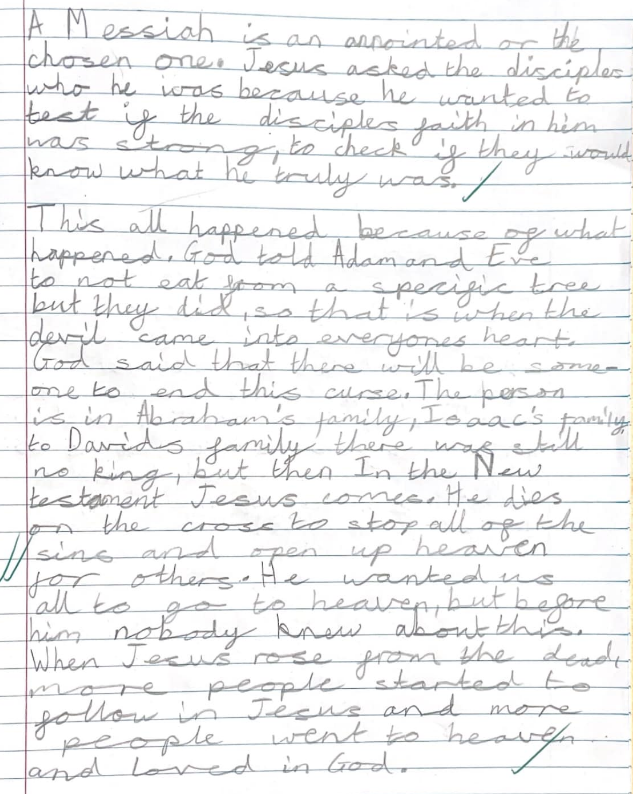 A Messiah is an annointed or the
chosen one. Jesus asked the disciples
who he was because he wanted to
test if the disciples faith in him
was strong, to check if they would
know what he truly was.
This all happened because of what
happened. God told Adam and Eve
to not eat from a specific tree
but they did, so that is when the
devil came into everyones heart.
God said that there will be some-
one to end this curse. The person
is in Abraham's family, Isaac's family
to Davids family there was still
no king, but then In the New
testament Jesus comes. He dies
on the cross to stop all of the
sins and open up heaven
for others. He wanted us
all to go to heaven, but before
him nobody knew about this.
When Jesus rose from the dead,
more people started to
follow in Jesus and more
people went to heaven
and loved in God.